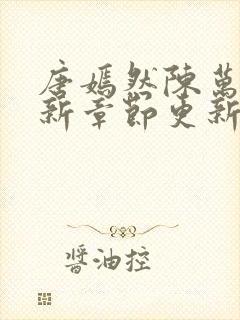 唐嫣然陳萬
新章節更新
醬油控